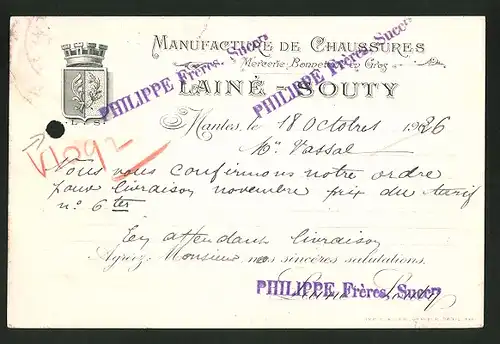 MANUFACTURE DE CHAUSSURES
Mercerie, Bonneterie en Gros
LAINÉ - SOUTY
PHILIPPE Frères, Succrs
PHILIPPE Frères, Succrs
L. S.
Nantes, le 18 Octobre 1926
Mr Vassal
V1292
Nous vous confirmons notre ordre
pour livraison novembre prix du tarif
n° 6 ter
En attendant livraison
Agréez Monsieur nos sincères salutations.
PHILIPPE Frères, Succrs